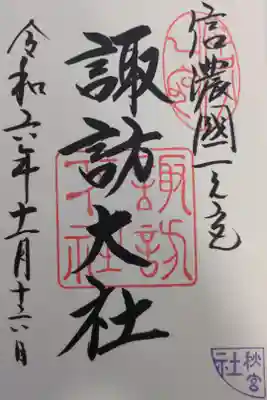 信濃國一之宮
諏訪大社
諏訪大社
令和六年十一月十六日
秋宮
社